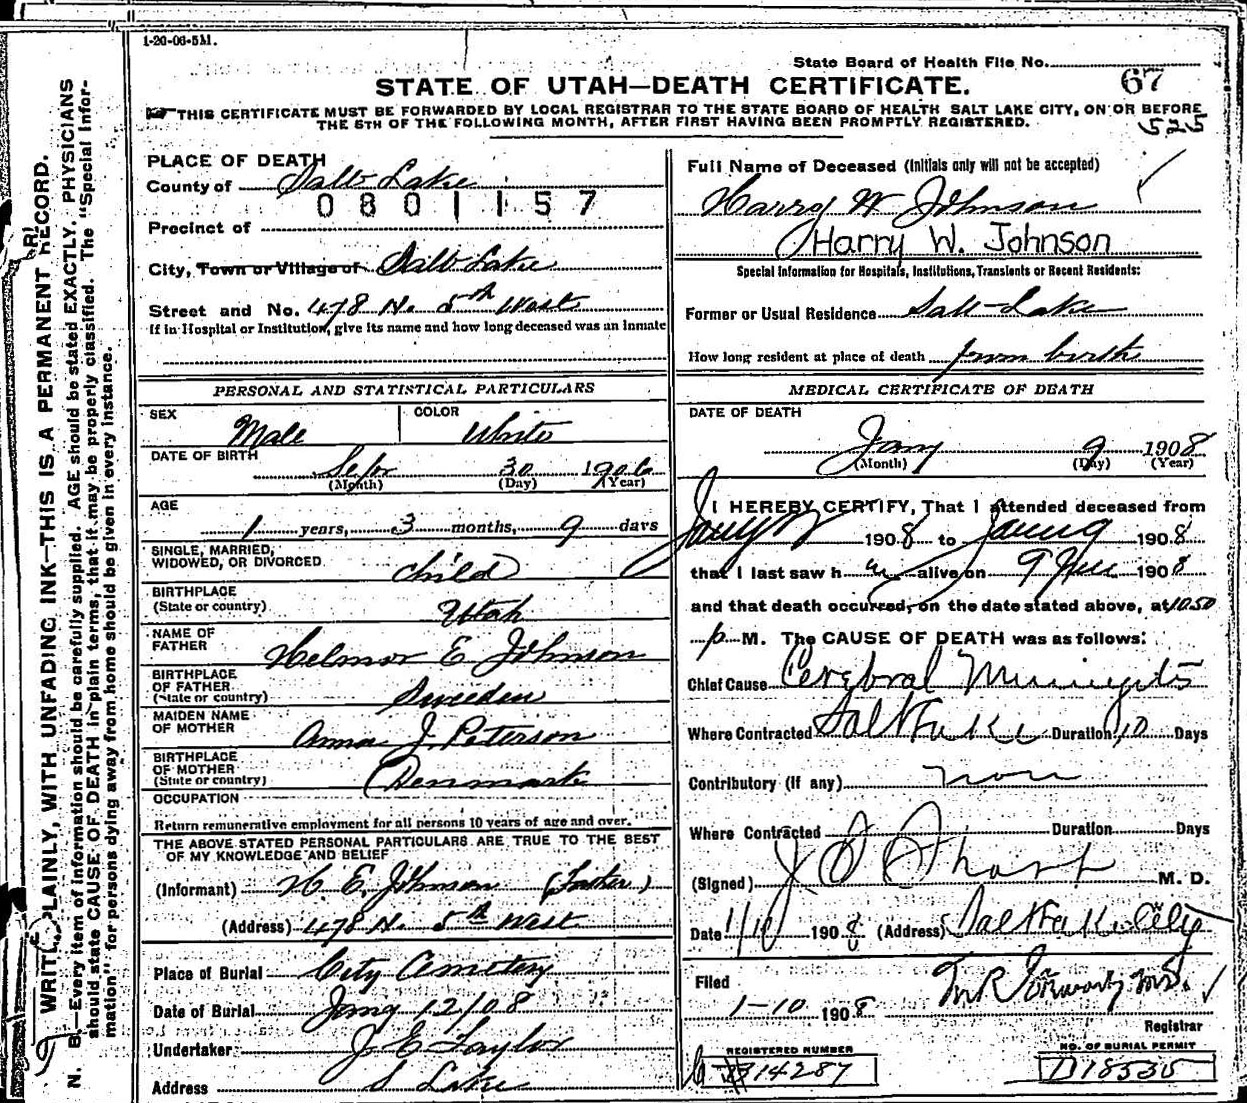 1-20-06-5M.
State Board of Health File No.
STATE OF UTAH—DEATH CERTIFICATE.
67
THIS CERTIFICATE MUST BE FORWARDED BY LOCAL REGISTRAR TO THE STATE BOARD OF HEALTH SALT LAKE CITY, ON OR BEFORE
THE 5TH OF THE FOLLOWING MONTH, AFTER FIRST HAVING BEEN PROMPTLY REGISTERED.
525
WRITE PLAINLY, WITH UNFADING INK—THIS IS A PERMANENT RECORD.
N. B.—Every item of information should be carefully supplied. AGE should be stated EXACTLY. PHYSICIANS
should state CAUSE OF DEATH in plain terms, that it may be properly classified. The "Special Infor-
mation" for persons dying away from home should be given in every instance.
PLACE OF DEATH
County of Salt Lake
0801157
Precinct of
City, Town or Village of Salt Lake
Street and No. 478 N. 5th West
If in Hospital or Institution, give its name and how long deceased was an Inmate
PERSONAL AND STATISTICAL PARTICULARS
SEX Male COLOR White
DATE OF BIRTH Sept 30 1906
(Month) (Day) (Year)
AGE
1 years, 3 months, 9 days
SINGLE, MARRIED,
WIDOWED, OR DIVORCED child
BIRTHPLACE
(State or country) Utah
NAME OF
FATHER Helmor E Johnson
BIRTHPLACE
OF FATHER
(State or country) Sweeden
MAIDEN NAME
OF MOTHER Anna J. Peterson
BIRTHPLACE
OF MOTHER
(State or country) Denmark
OCCUPATION
Return remunerative employment for all persons 10 years of age and over.
THE ABOVE STATED PERSONAL PARTICULARS ARE TRUE TO THE BEST
OF MY KNOWLEDGE AND BELIEF
(Informant) H. E. Johnson (Father)
(Address) 478 N. 5th West
Place of Burial City Cemetery
Date of Burial Jany 12/08
Undertaker J E Taylor
Address S Lake
Full Name of Deceased (Initials only will not be accepted)
Harry W Johnson
Harry W. Johnson
Special Information for Hospitals, Institutions, Transients or Recent Residents:
Former or Usual Residence Salt Lake
How long resident at place of death from birth
MEDICAL CERTIFICATE OF DEATH
DATE OF DEATH
Jany 9 1908
(Month) (Day) (Year)
I HEREBY CERTIFY, That I attended deceased from
Jany 1908 to Jany 9 1908
that I last saw h alive on 9 1908
and that death occurred, on the date stated above, at 10.50
p M. The CAUSE OF DEATH was as follows:
Chief Cause Cerebral Miningitis
Where Contracted Salt Lake Duration 10 Days
Contributory (if any) non
Where Contracted Duration Days
(Signed) M. D.
Date 1/10 1908 (Address) Salt Lake City
Filed
1-10 1908
Registrar
REGISTERED NUMBER
14287
NO. OF BURIAL PERMIT
D18535